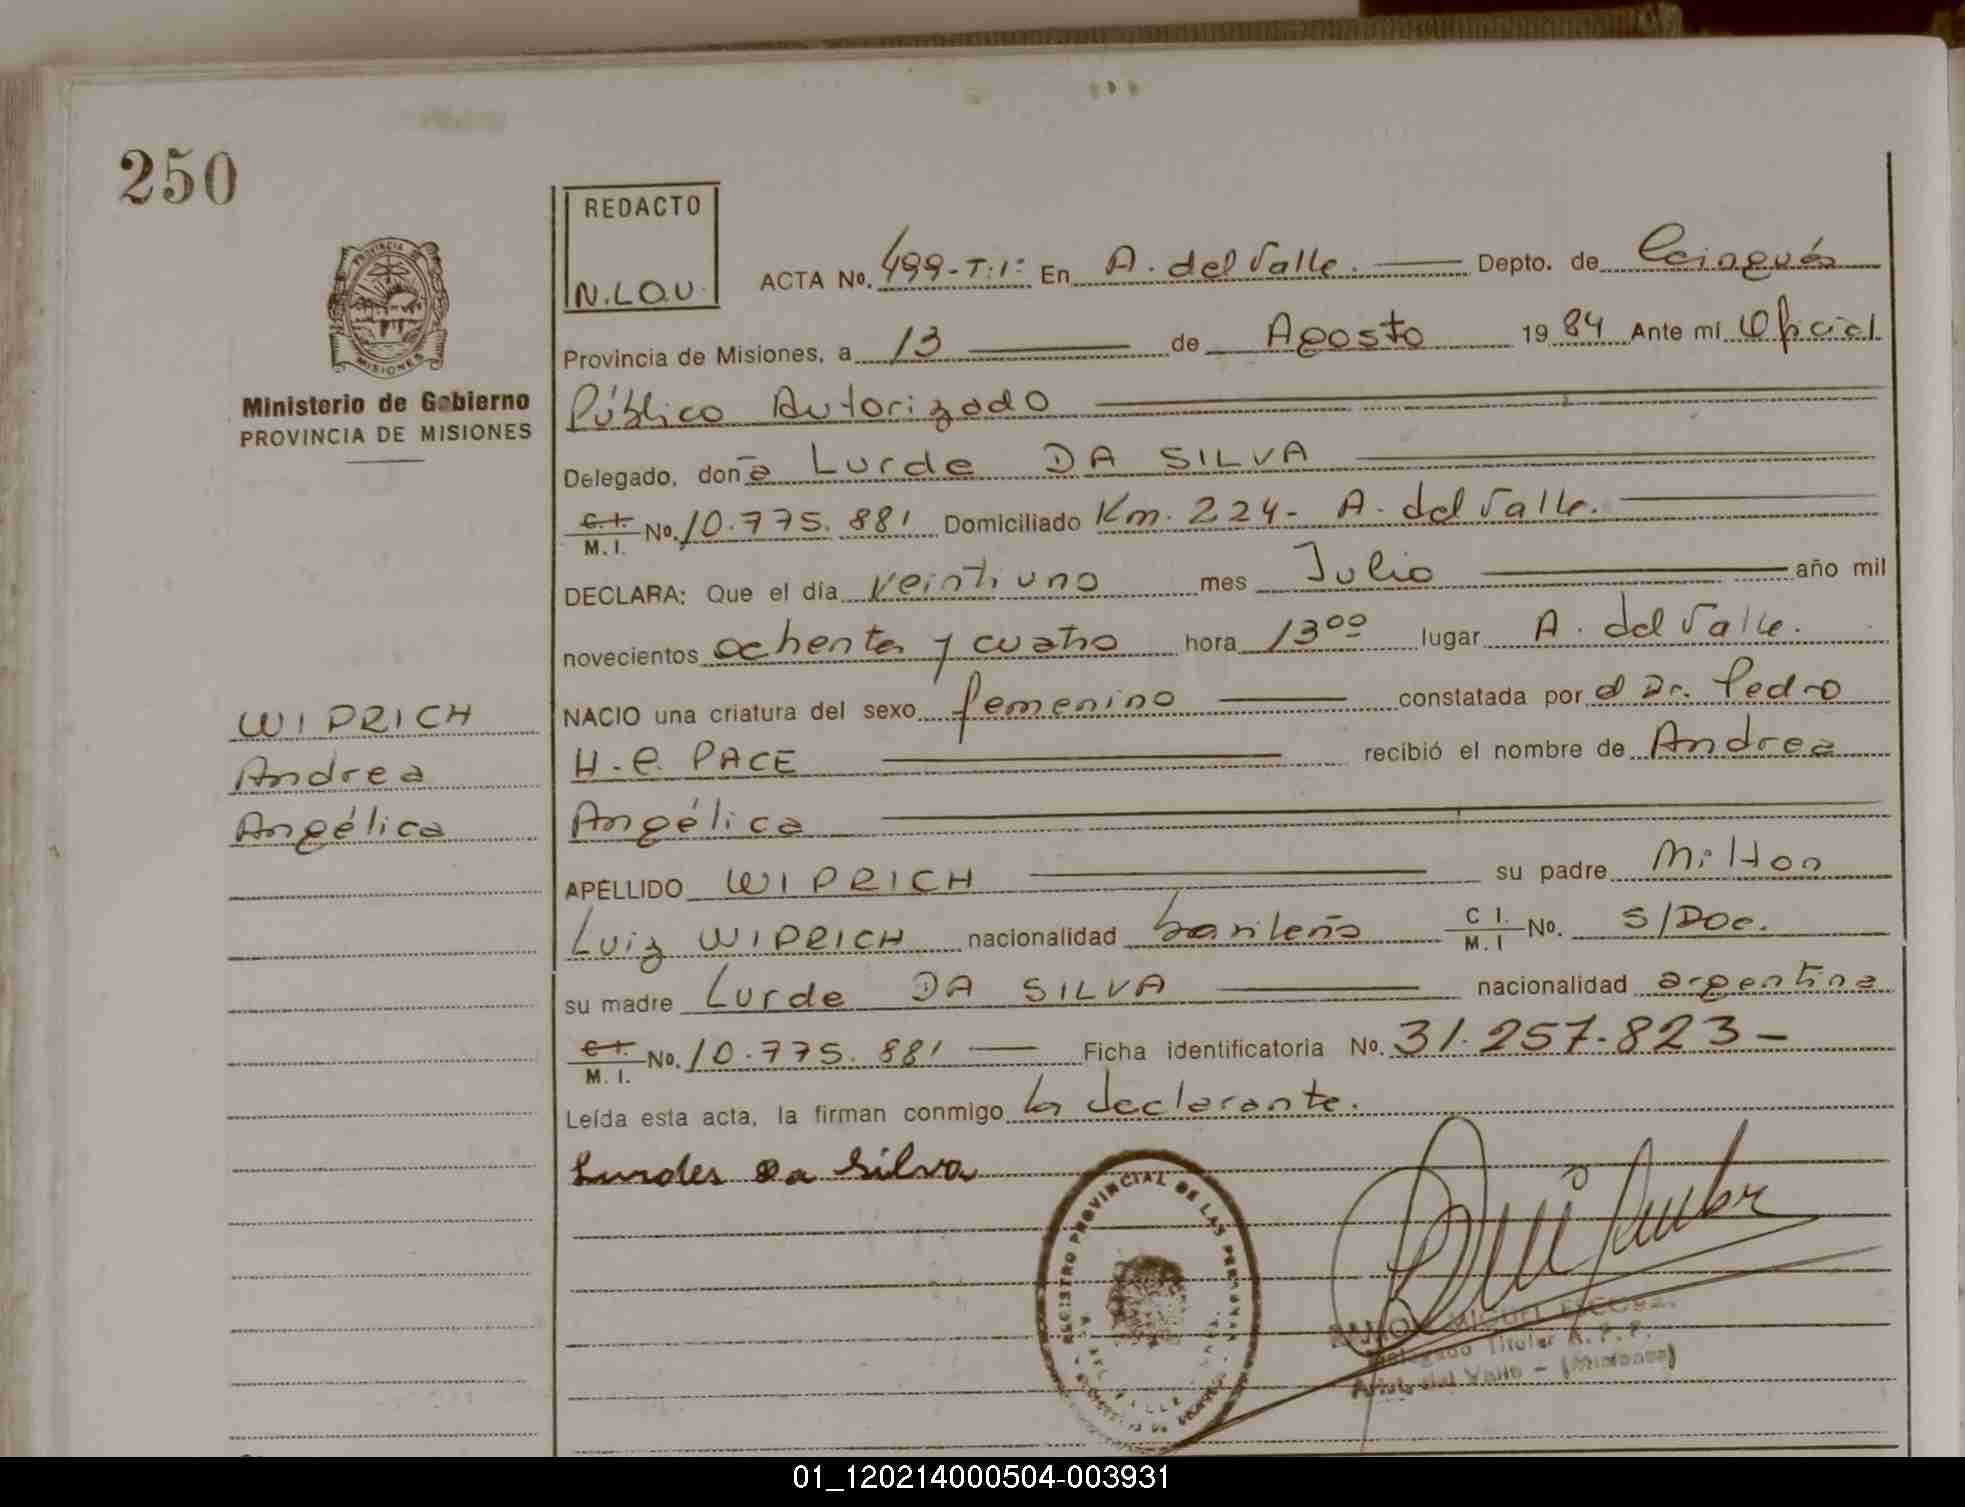 250
REDACTO
N.LQU.
PROVINCIA DE
MISIONES
Ministerio de Gobierno
PROVINCIA DE MISIONES
ACTA No. 499-T:1º En A. del Valle. Depto. de Cainguás
Provincia de Misiones, a 13 de Agosto 1984 Ante mí Oficial
Público Autorizado
Delegado, doña Lurde DA SILVA
C.I. M.I. No. 10.775.881 Domiciliado Km. 224- A. del Valle.
DECLARA: Que el día veintiuno mes Julio año mil
novecientos ochenta y cuatro hora 13ºº lugar A. del Valle.
WIPRICH
Andrea
Angélica
NACIO una criatura del sexo femenino constatada por el Dr. Pedro
H. C. PACE recibió el nombre de Andrea
Angélica
APELLIDO WIPRICH su padre Milton
Luiz WIPRICH nacionalidad brasileña C I. M. I No. S/Doc.
su madre Lurde DA SILVA nacionalidad argentina
C.I. M. I. No. 10.775.881 Ficha identificatoria No. 31.257.823-
Leída esta acta, la firman conmigo la declarante.
Lurdes Da Silva
REGISTRO PROVINCIAL DE LAS PERSONAS
MIGUEL
Delegado Titular R. P. P.
Aristóbulo del Valle - (Misiones)
01_120214000504-003931